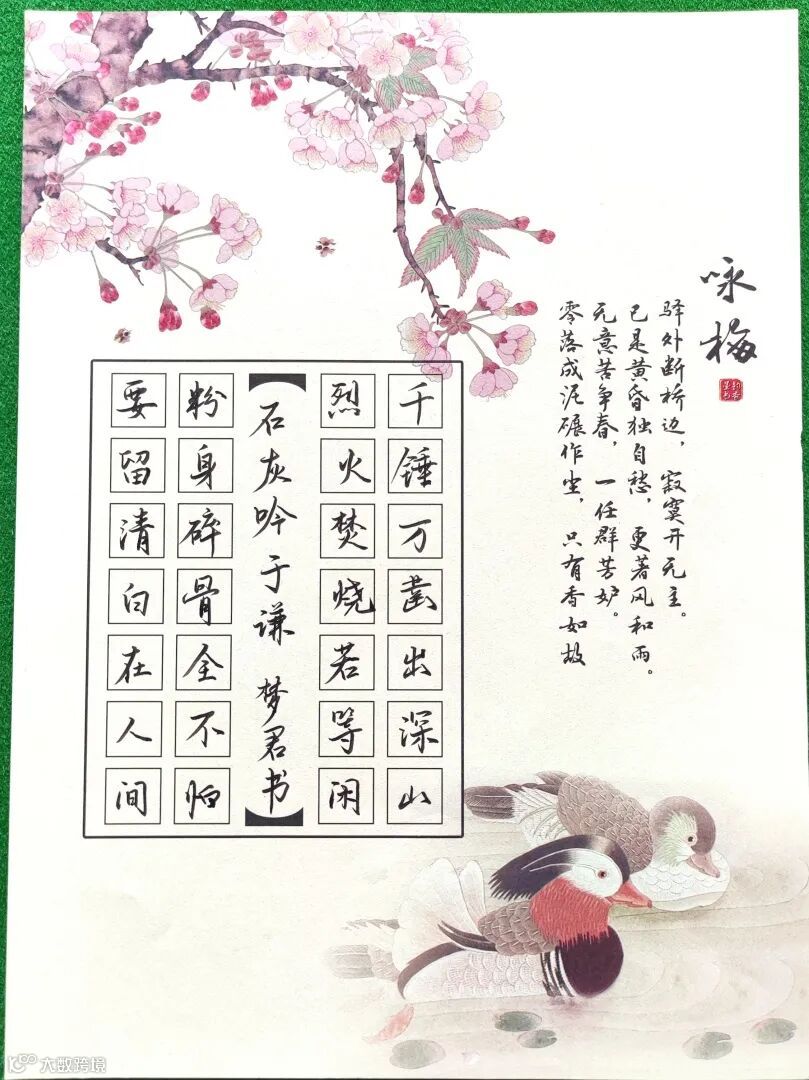 咏梅
驿外断桥边，寂寞开无主。
已是黄昏独自愁，更著风和雨。
无意苦争春，一任群芳妒。
零落成泥碾作尘，只有香如故
千锤万凿出深山
烈火焚烧若等闲
石灰吟 于谦 梦君书
粉身碎骨全不怕
要留清白在人间
大数跨境